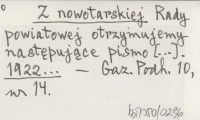 Z nowotarskiej Rady
powiatowej otrzymujemy
następujące pismo [...].
1922... — Gaz. Podh. 10,
nr 14.